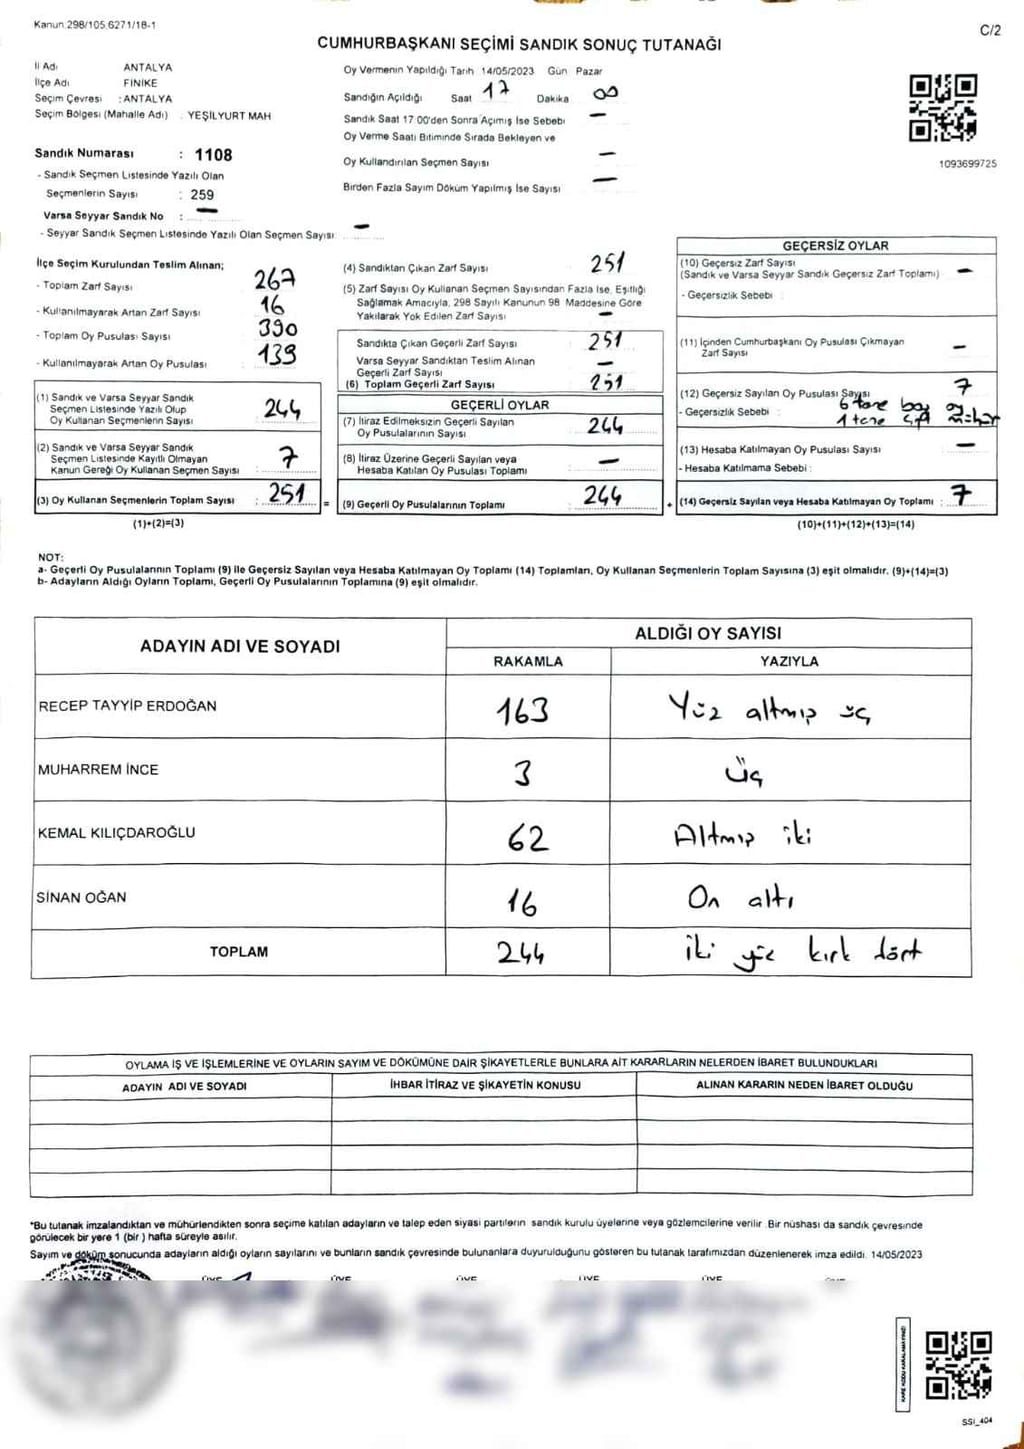 Kanun 298/105.6271/18-1
C/2
CUMHURBAŞKANI SEÇİMİ SANDIK SONUÇ TUTANAĞI
İl Adı ANTALYA
İlçe Adı FİNİKE
Seçim Çevresi : ANTALYA
Seçim Bölgesi (Mahalle Adı) : YEŞİLYURT MAH
Sandık Numarası : 1108
- Sandık Seçmen Listesinde Yazılı Olan
Seçmenlerin Sayısı : 259
Varsa Seyyar Sandık No : —
- Seyyar Sandık Seçmen Listesinde Yazılı Olan Seçmen Sayısı —
Oy Vermenin Yapıldığı Tarih 14/05/2023 Gün Pazar
Sandığın Açıldığı Saat 17 Dakika 00
Sandık Saat 17 00'den Sonra Açımış İse Sebebi —
Oy Verme Saati Bitiminde Sırada Bekleyen ve
Oy Kullandırılan Seçmen Sayısı —
Birden Fazla Sayım Döküm Yapılmış İse Sayısı —
1093699725
İlçe Seçim Kurulundan Teslim Alınan;
- Toplam Zarf Sayısı 267
- Kullanılmayarak Artan Zarf Sayısı 16
- Toplam Oy Pusulası Sayısı 390
- Kullanılmayarak Artan Oy Pusulası 139
(1) Sandık ve Varsa Seyyar Sandık
Seçmen Listesinde Yazılı Olup
Oy Kullanan Seçmenlerin Sayısı 244
(2) Sandık ve Varsa Seyyar Sandık
Seçmen Listesinde Kayıtlı Olmayan
Kanun Gereği Oy Kullanan Seçmen Sayısı : 7
(3) Oy Kullanan Seçmenlerin Toplam Sayısı : 251
(1)+(2)=(3)
(4) Sandıktan Çıkan Zarf Sayısı 251
(5) Zarf Sayısı Oy Kullanan Seçmen Sayısından Fazla İse, Eşitliği
Sağlamak Amacıyla, 298 Sayılı Kanunun 98 Maddesine Göre
Yakılarak Yok Edilen Zarf Sayısı —
Sandıkta Çıkan Geçerli Zarf Sayısı : 251
Varsa Seyyar Sandıktan Teslim Alınan
Geçerli Zarf Sayısı —
(6) Toplam Geçerli Zarf Sayısı 251
GEÇERLİ OYLAR
(7) İtiraz Edilmeksizin Geçerli Sayılan
Oy Pusulalarının Sayısı 244
(8) İtiraz Üzerine Geçerli Sayılan veya
Hesaba Katılan Oy Pusulası Toplamı —
= (9) Geçerli Oy Pusulalarının Toplamı : 244
GEÇERSİZ OYLAR
(10) Geçersiz Zarf Sayısı
(Sandık ve Varsa Seyyar Sandık Geçersiz Zarf Toplamı) —
- Geçersizlik Sebebi
(11) İçinden Cumhurbaşkanı Oy Pusulası Çıkmayan
Zarf Sayısı —
(12) Geçersiz Sayılan Oy Pusulası Sayısı 7
- Geçersizlik Sebebi : 6 tane boş oy
1 tane çift mühür
(13) Hesaba Katılmayan Oy Pusulası Sayısı —
- Hesaba Katılmama Sebebi :
+ (14) Geçersiz Sayılan veya Hesaba Katılmayan Oy Toplamı : 7
(10)+(11)+(12)+(13)=(14)
NOT:
a- Geçerli Oy Pusulalarının Toplamı (9) ile Geçersiz Sayılan veya Hesaba Katılmayan Oy Toplamı (14) Toplamları, Oy Kullanan Seçmenlerin Toplam Sayısına (3) eşit olmalıdır. (9)+(14)=(3)
b- Adayların Aldığı Oyların Toplamı, Geçerli Oy Pusulalarının Toplamına (9) eşit olmalıdır.
ADAYIN ADI VE SOYADI
ALDIĞI OY SAYISI
RAKAMLA YAZIYLA
RECEP TAYYİP ERDOĞAN 163 Yüz altmış üç
MUHARREM İNCE 3 Üç
KEMAL KILIÇDAROĞLU 62 Altmış iki
SİNAN OĞAN 16 On altı
TOPLAM 244 iki yüz kırk dört
OYLAMA İŞ VE İŞLEMLERİNE VE OYLARIN SAYIM VE DÖKÜMÜNE DAİR ŞİKAYETLERLE BUNLARA AİT KARARLARIN NELERDEN İBARET BULUNDUKLARI
ADAYIN ADI VE SOYADI İHBAR İTİRAZ VE ŞİKAYETİN KONUSU ALINAN KARARIN NEDEN İBARET OLDUĞU
*Bu tutanak imzalandıktan ve mühürlendikten sonra seçime katılan adayların ve talep eden siyasi partilerin sandık kurulu üyelerine veya gözlemcilerine verilir. Bir nüshası da sandık çevresinde
görülecek bir yere 1 (bir ) hafta süreyle asılır.
Sayım ve döküm sonucunda adayların aldığı oyların sayılarını ve bunların sandık çevresinde bulunanlara duyurulduğunu gösteren bu tutanak tarafımızdan düzenlenerek imza edildi. 14/05/2023
ÜYE ÜYE ÜYE ÜYE ÜYE
KARE KODU KARALAMAYINIZ!
SSI_404